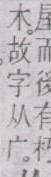 屋而後有朽
木。故字从广。